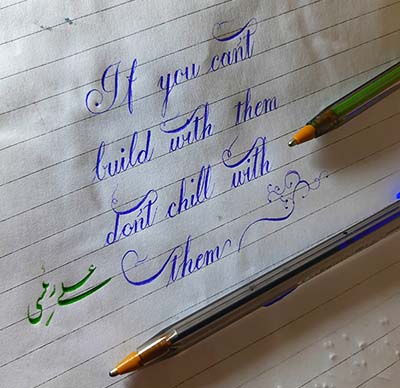 If you can't
build with them
don't chill with
them